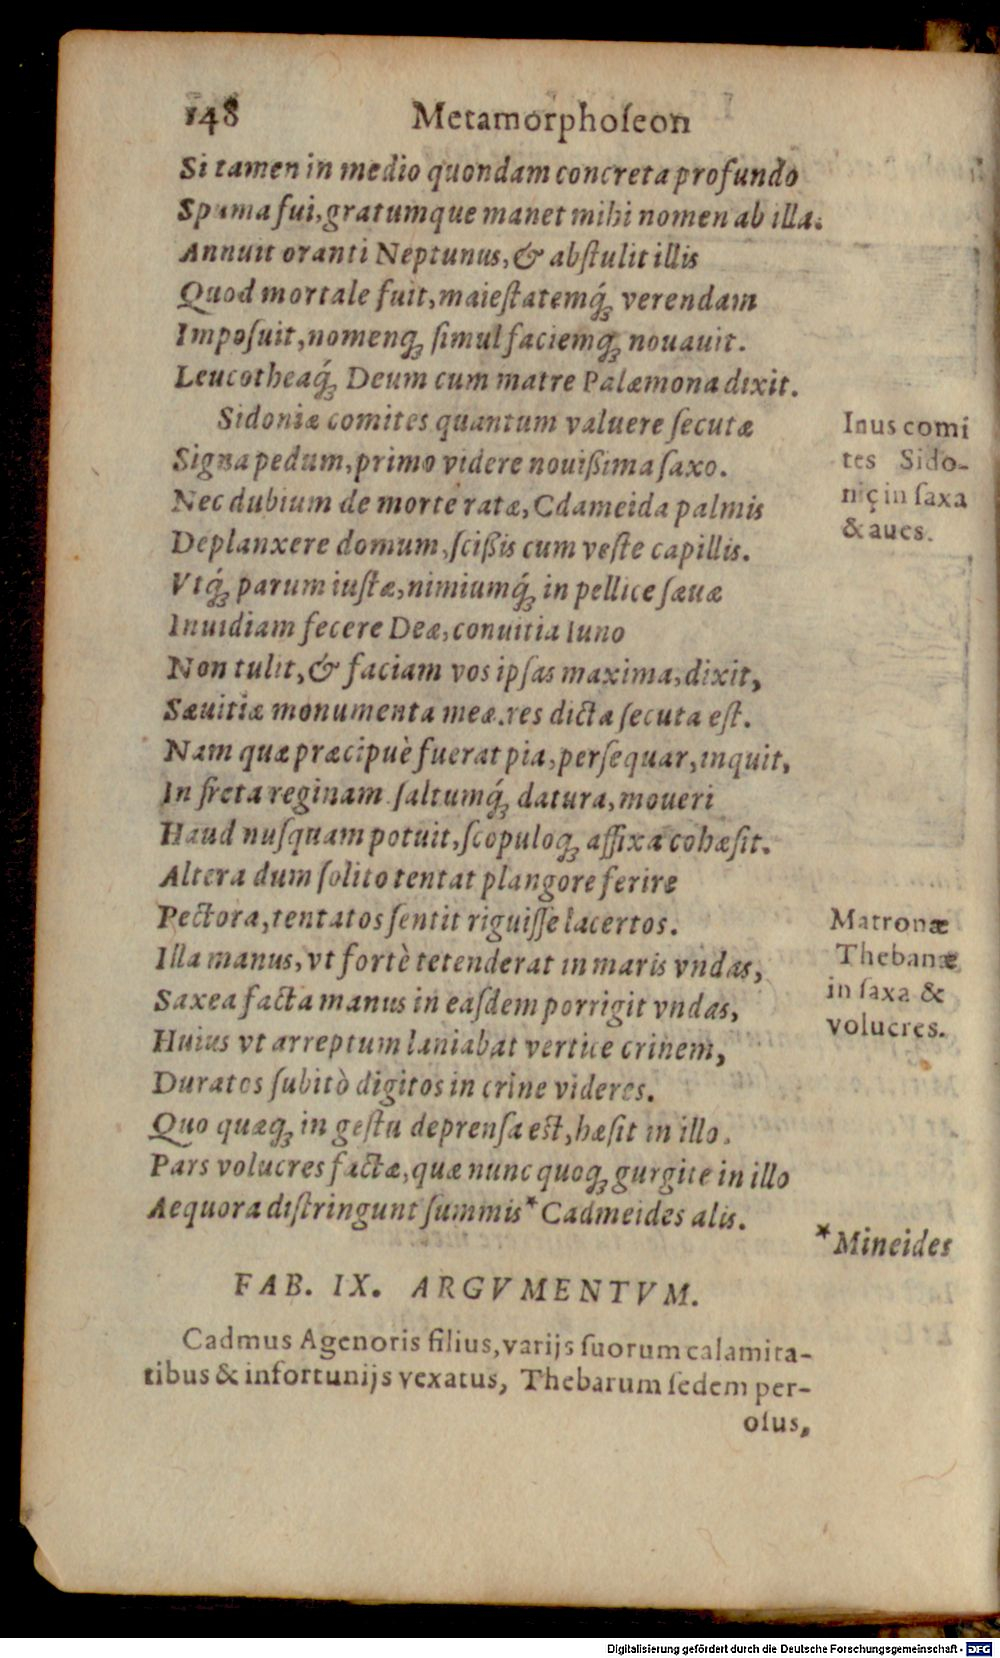 148 Metamorphoſeon
Si tamen in medio quondam concreta profundo
Spuma fui, gratumque manet mihi nomen ab illa.
Annuit oranti Neptunus, & abſtulit illis
Quod mortale fuit, maieſtatemq́ꝫ verendam
Impoſuit, nomenqꝫ ſimul faciemqꝫ nouauit.
Leucotheaq́ꝫ Deum cum matre Palæmona dixit.
Sidoniæ comites quantum valuere ſecutæ
Signa pedum, primo videre nouißima ſaxo.
Nec dubium de morte ratæ, Cdameida palmis
Deplanxere domum, ſcißis cum veſte capillis.
Vtq́ꝫ parum iuſtæ, nimiumq́ꝫ in pellice ſæuæ
Inuidiam fecere Deæ, conuitia Iuno
Non tulit, & faciam vos ipſas maxima, dixit,
Sæuitiæ monumenta meæ. res dicta ſecuta eſt.
Nam quæ præcipuè fuerat pia, perſequar, inquit,
In freta reginam ſaltumq́ꝫ datura, moueri
Haud nuſquam potuit, ſcopuloqꝫ affixa cohæſit.
Altera dum ſolito tentat plangore ferire
Pectora, tentatos ſentit riguiſſe lacertos.
Illa manus, vt fortè tetenderat in maris vndas,
Saxea facta manus in eaſdem porrigit vndas,
Huius vt arreptum laniabat vertice crinem,
Duratos ſubitò digitos in crine videres.
Quo quæqꝫ in geſtu deprenſa eſt, hæſit in illo.
Pars volucres factæ, quæ nunc quoqꝫ gurgite in illo
Aequora diſtringunt ſummis * Cadmeides alis.
Inus comi
tes Sido-
nię in ſaxa
& aues.
Matronæ
Thebanæ
in ſaxa &
volucres.
* Mineides
FAB. IX. ARGVMENTVM.
Cadmus Agenoris filius, varijs ſuorum calamita-
tibus & infortunijs vexatus, Thebarum ſedem per-
oſus,
Digitalisierung gefördert durch die Deutsche Forschungsgemeinschaft - DFG